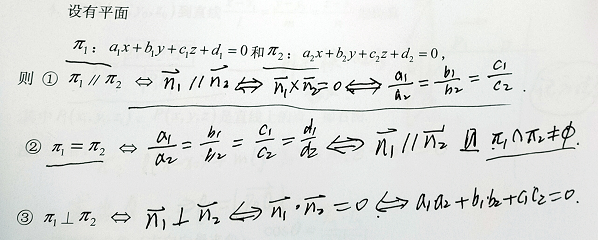 设有平面
π₁：a₁x+b₁y+c₁z+d₁=0 和 π₂：a₂x+b₂y+c₂z+d₂=0，
则 ① π₁ // π₂ ⇔ n₁⃗ // n₂⃗ ⇔ n₁⃗ × n₂⃗ = 0 ⇔ a₁/a₂ = b₁/b₂ = c₁/c₂ .
② π₁ = π₂ ⇔ a₁/a₂ = b₁/b₂ = c₁/c₂ = d₁/d₂ ⇔ n₁⃗ // n₂⃗ 且 π₁∩π₂≠ϕ.
③ π₁ ⊥ π₂ ⇔ n₁⃗ ⊥ n₂⃗ ⇔ n₁⃗ · n₂⃗ = 0 ⇔ a₁a₂+b₁b₂+c₁c₂=0.